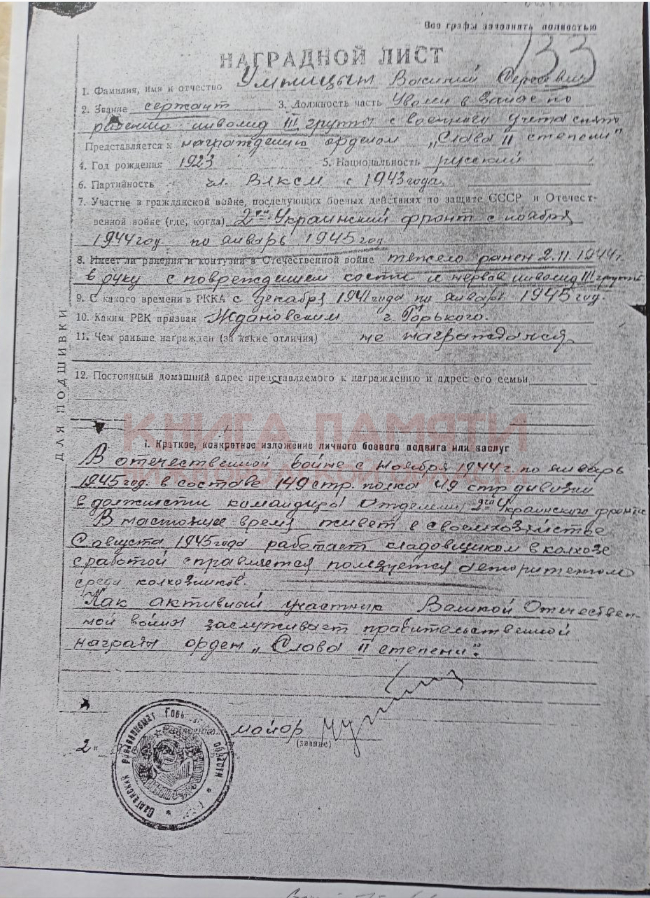 Все графы заполнять полностью
133
НАГРАДНОЙ ЛИСТ
1. Фамилия, имя и отчество Умницын Василий Сергеевич
2. Звание сержант 3. Должность часть Уволен в запас по
ранению инвалид III группы с военного учета снят
Представляется к награждению орденом „Слава II степени"
4. Год рождения 1923 5. Национальность русский
6. Партийность чл. ВЛКСМ с 1943 года
7. Участие в гражданской войне, последующих боевых действиях по защите СССР и Отечест-
венной войне (где, когда) 2ой Украинский фронт с ноября
1944 год. по январь 1945 год.
8. Имеет ли ранения и контузии в Отечественной войне тяжело ранен 2.11.1944г
в руку с повреждением кости и нерва инвалид III группы
9. С какого времени в РККА с декабря 1941 года по январь 1945 год.
10. Каким РВК призван Ждановским г. Горького.
11. Чем раньше награжден (за какие отличия) не награждался
12. Постоянный домашний адрес представляемого к награждению и адрес его семьи
ДЛЯ ПОДШИВКИ
КНИГА ПАМЯТИ
1. Краткое, конкретное изложение личного боевого подвига или заслуг
В отечественной войне с ноября 1944 г. по январь
1945 год. в составе 149 стр. полка 49 стр дивизии
в должности командира отделения 2ой Украинского фронта
В настоящее время живет в своем хозяйстве
С августа 1945 года работает кладовщиком в колхозе
с работой справляется пользуется авторитетом
среди колхозников.
Как активный участник Великой Отечествен-
ной войны заслуживает правительственной
награды орден „Слава II степени".
майор
(звание)
2